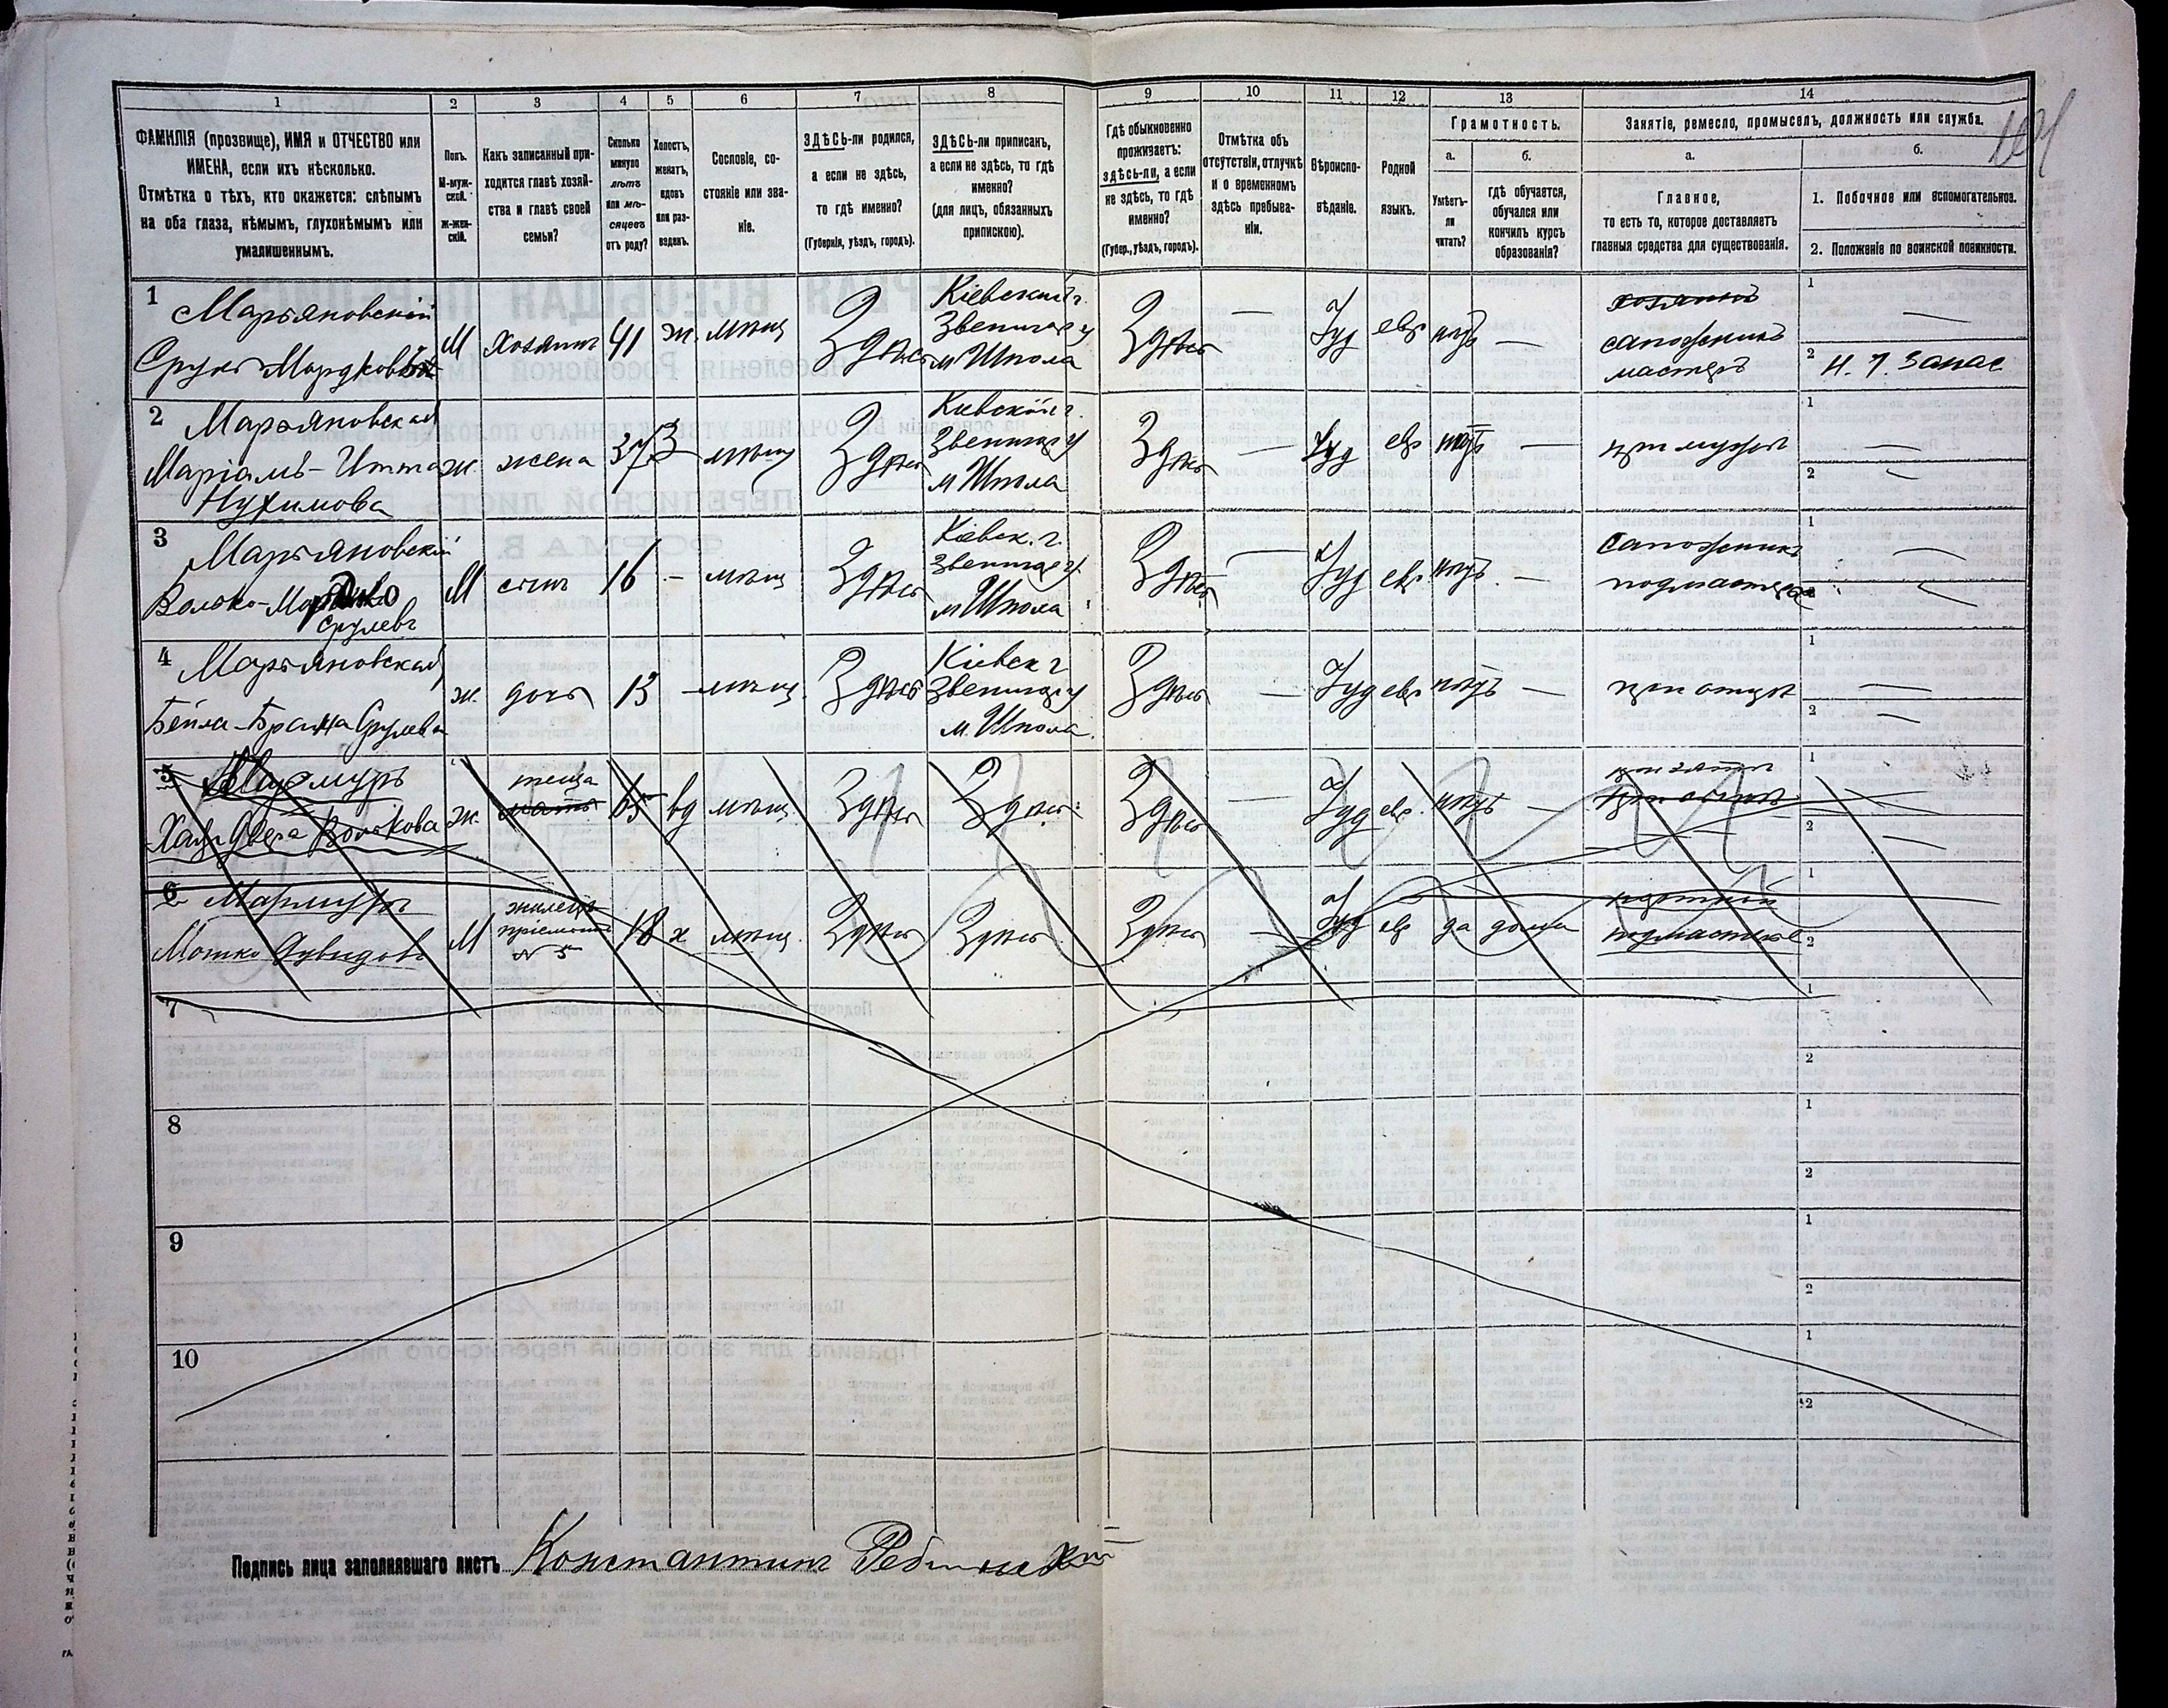 1 2 3 4 5 6 7 8 9 10 11 12 13 14
ФАМИЛІЯ (прозвище), ИМЯ и ОТЧЕСТВО или
ИМЕНА, если ихъ нѣсколько.
Отмѣтка о тѣхъ, кто окажется: слѣпымъ
на оба глаза, нѣмымъ, глухонѣмымъ или
умалишеннымъ.
Полъ.
М-муж-
ской.
Ж-жен-
скій.
Какъ записанный при-
ходится главѣ хозяй-
ства и главѣ своей
семьи?
Сколько
минуло
лѣтъ
или мѣ-
сяцевъ
отъ роду?
Холостъ,
женатъ,
вдовъ
или раз-
веденъ.
Сословіе, со-
стояніе или зва-
ніе.
ЗДѢСЬ-ли родился,
а если не здѣсь,
то гдѣ именно?
(Губернія, уѣздъ, городъ).
ЗДѢСЬ-ли приписанъ,
а если не здѣсь, то гдѣ
именно?
(для лицъ, обязанныхъ
припискою).
Гдѣ обыкновенно
проживаетъ:
здѣсь-ли, а если
не здѣсь, то гдѣ
именно?
(Губер., уѣздъ, городъ).
Отмѣтка объ
отсутствіи, отлучкѣ
и о временномъ
здѣсь пребыва-
ніи.
Вѣроиспо-
вѣданіе.
Родной
языкъ.
Грамотность.
а.
Умѣетъ-
ли
читать?
б.
гдѣ обучается,
обучался или
кончилъ курсъ
образованія?
Занятіе, ремесло, промыселъ, должность или служба.
а.
Главное,
то есть то, которое доставляетъ
главныя средства для существованія.
б.
1. Побочное или вспомогательное.
2. Положеніе по воинской повинности.
1 Марьяновскій
Сруль Мордковъ
М Хозяинъ 41 ж. мѣщ Здѣсь
Кіевской г.
Звенигор у
м Шпола
Здѣсь — Іуд евр нѣтъ —
хозяинъ
сапожникъ
мастеръ
1 —
2 Н. Ч. Запас
2 Марьяновская
Маріамъ-Итта
Нухимова
ж. жена 37 З мѣщ Здѣсь
Кіевской г.
Звенигор у
м Шпола
Здѣсь — Іуд евр нѣтъ —
при мужѣ
1 —
2 —
3 Марьяновскій
Волько-Мордко
Срулевъ
М сынъ 16 - мѣщ Здѣсь
Кіевск. г.
Звенигор у
м Шпола
Здѣсь — Іуд евр. нѣтъ. —
Сапожникъ
подмастерье
1 —
2 —
4 Марьяновская
Бейла-Брайна Срулева
ж. дочь 13 - мѣщ. Здѣсь
Кіевск г
Звенигор у
м. Шпола.
Здѣсь — Іуд евр нѣтъ —
при отцѣ
1 —
2 —
5 Мармуръ
Хая-Двера Волькова
ж.
теща
мать
65 вд мѣщ. Здѣсь Здѣсь Здѣсь — Іуд евр. нѣтъ —
при зятѣ
при сынѣ
1 —
2 —
6 Мармуръ
Мошко Дувидовъ
М
жилецъ
пріемышъ
№ 5
18 х мѣщ. Здѣсь Здѣсь Здѣсь — Іуд евр да дома
портной
подмастерье
1
2
7
1
2
8
1
2
9
1
2
10
1
2
Подпись лица заполнявшаго листъ Константинъ